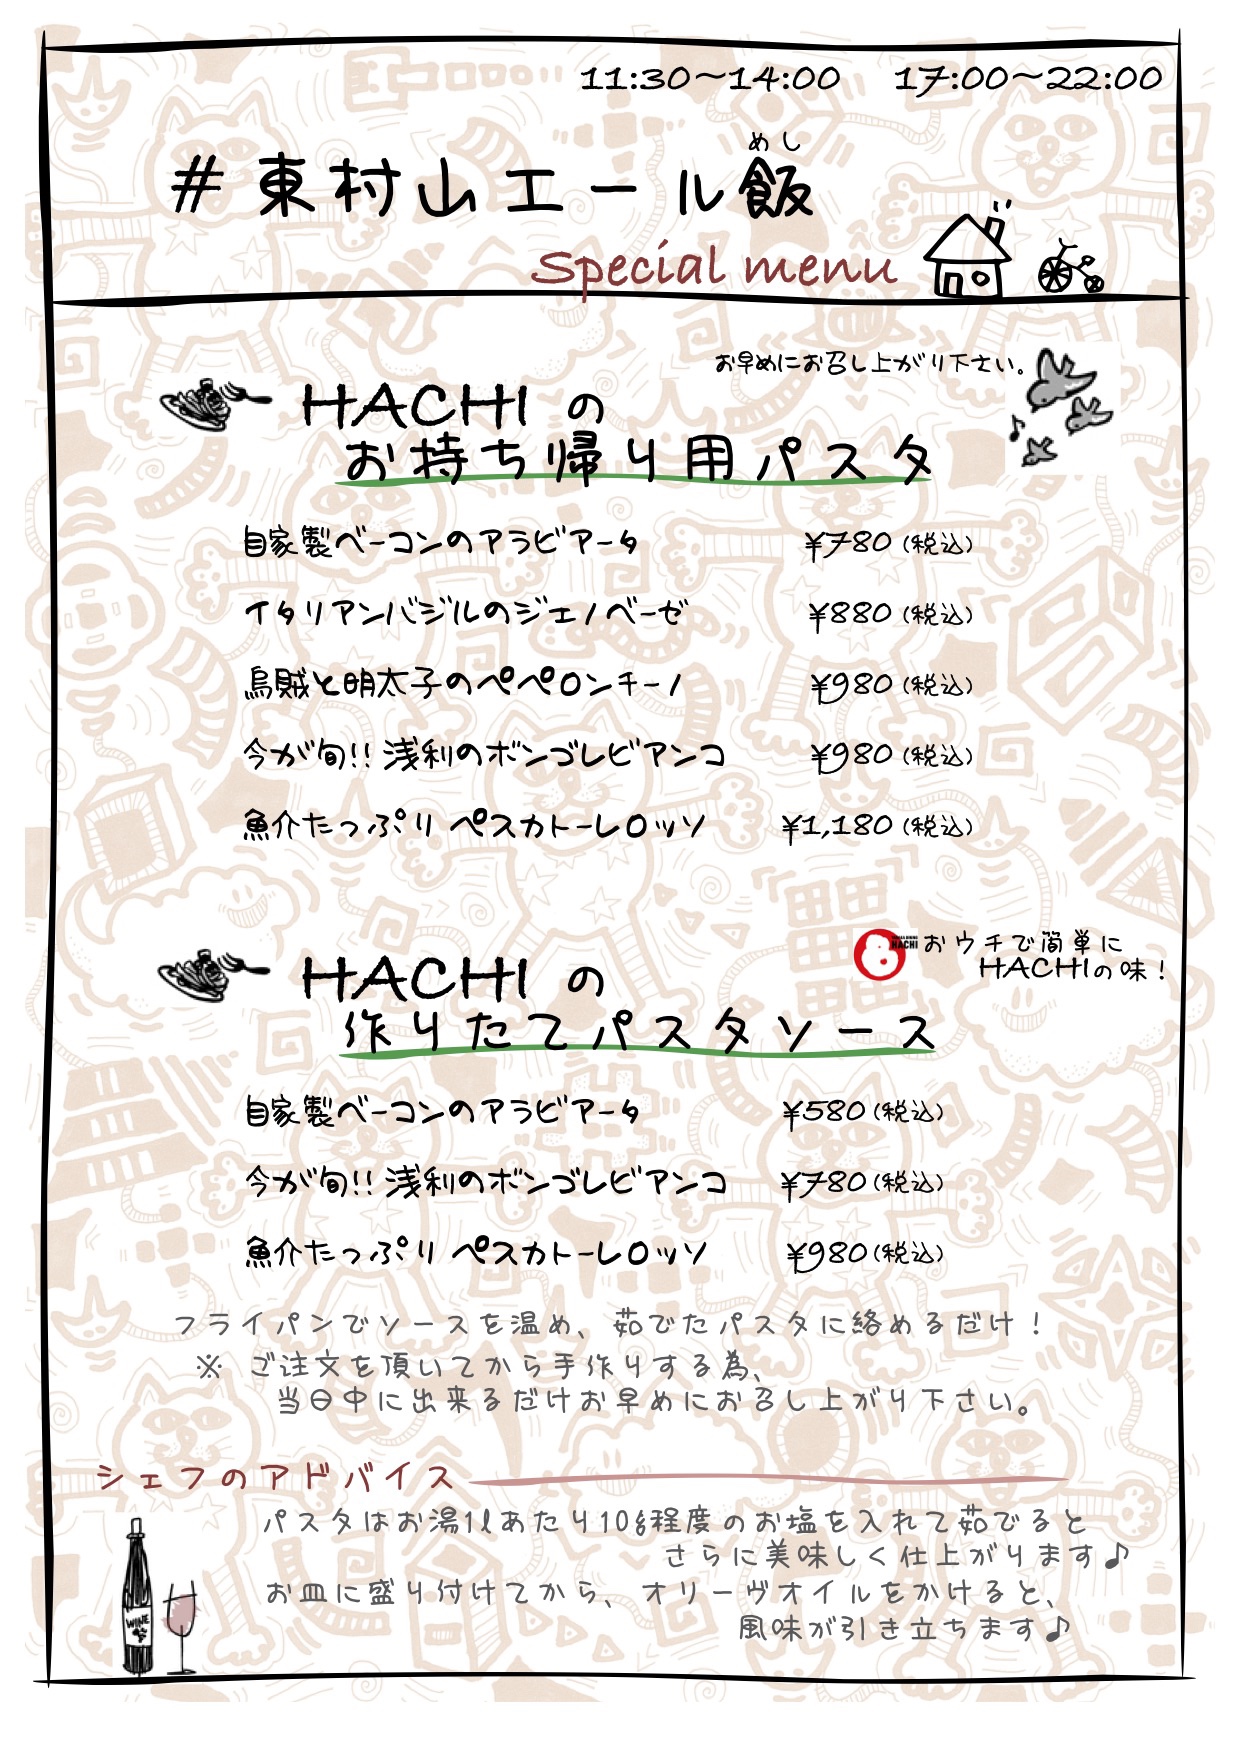 11:30～14:00 17:00～22:00
めし
#東村山エール飯
Special menu
お早めにお召し上がり下さい。
HACHIの
お持ち帰り用パスタ
自家製ベーコンのアラビアータ ¥780(税込)
イタリアンバジルのジェノベーゼ ¥880(税込)
烏賊と明太子のペペロンチーノ ¥980(税込)
今が旬!! 浅利のボンゴレビアンコ ¥980(税込)
魚介たっぷり ペスカトーレロッソ ¥1,180(税込)
HACHI
おウチで簡単に
HACHIの味！
HACHIの
作りたてパスタソース
自家製ベーコンのアラビアータ ¥580(税込)
今が旬!! 浅利のボンゴレビアンコ ¥780(税込)
魚介たっぷり ペスカトーレロッソ ¥980(税込)
フライパンでソースを温め、茹でたパスタに絡めるだけ！
※ ご注文を頂いてから手作りする為、
当日中に出来るだけお早めにお召し上がり下さい。
シェフのアドバイス
パスタはお湯1ℓあたり10g程度のお塩を入れて茹でると
さらに美味しく仕上がります♪
お皿に盛り付けてから、オリーヴオイルをかけると、
風味が引き立ちます♪
WINE